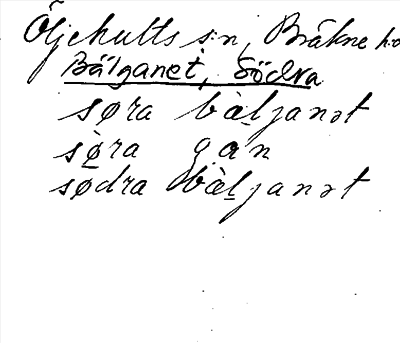 Öljehults s:n, Bräkne h:d
Bälganet, Södra
søra bàljanət
sø̀ra gan
sødra bàljanət